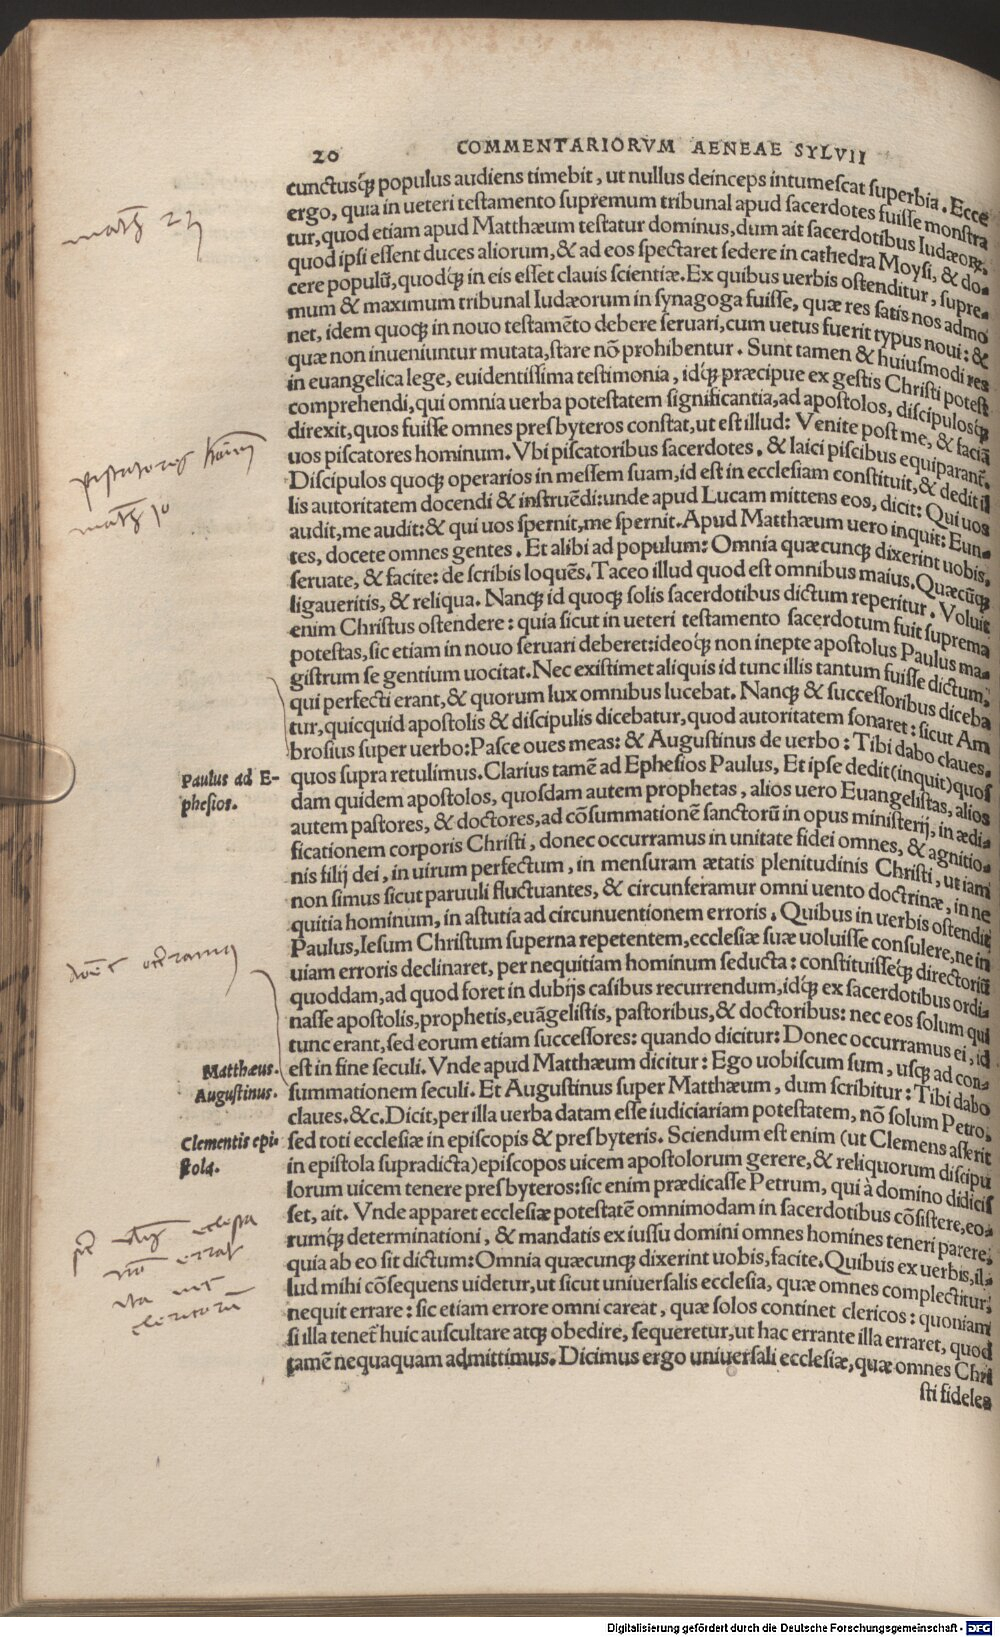 20 COMMENTARIORVM AENEAE SYLVII
cunctusq́ꝫ populus audiens timebit, ut nullus deinceps intumescat superbia. Ecce
ergo, quia in ueteri testamento supremum tribunal apud sacerdotes fuisse monstra
tur, quod etiam apud Matthæum testatur dominus, dum ait sacerdotibus Iudæoꝝ,
quod ipsi essent duces aliorum, & ad eos spectaret sedere in cathedra Moysi, & do-
cere populũ, quodq́ꝫ in eis esset clauis scientiæ. Ex quibus uerbis ostenditur, supre-
mum & maximum tribunal Iudæorum in synagoga fuisse, quæ res satis nos admo
net, idem quoqꝫ in nouo testamẽto debere seruari, cum uetus fuerit typus noui: &
quæ non inueniuntur mutata, stare nõ prohibentur. Sunt tamen & huiusmodi res
in euangelica lege, euidentissima testimonia, idq́ꝫ præcipue ex gestis Christi potest
comprehendi, qui omnia uerba potestatem significantia, ad apostolos, discipulosq́ꝫ
direxit, quos fuisse omnes presbyteros constat, ut est illud: Venite post me, & faciã
uos piscatores hominum. Vbi piscatoribus sacerdotes, & laici piscibus equiparant̃.
Discipulos quoqꝫ operarios in messem suam, id est in ecclesiam constituit, & dedit il
lis autoritatem docendi & instruẽdi: unde apud Lucam mittens eos, dicit: Qui uos
audit, me audit: & qui uos spernit, me spernit. Apud Matthæum uero inquit: Eun-
tes, docete omnes gentes. Et alibi ad populum: Omnia quæcunqꝫ dixerint uobis,
seruate, & facite: de scribis loquẽs. Taceo illud quod est omnibus maius. Quæcũqꝫ
ligaueritis, & reliqua. Nanqꝫ id quoqꝫ solis sacerdotibus dictum reperitur. Voluit
enim Christus ostendere: quia sicut in ueteri testamento sacerdotum fuit suprema
potestas, sic etiam in nouo seruari deberet: ideoq́ꝫ non inepte apostolus Paulus ma-
gistrum se gentium uocitat. Nec existimet aliquis id tunc illis tantum fuisse dictum,
qui perfecti erant, & quorum lux omnibus lucebat. Nanqꝫ & successoribus diceba
tur, quicquid apostolis & discipulis dicebatur, quod autoritatem sonaret: sicut Am
brosius super uerbo: Pasce oues meas: & Augustinus de uerbo: Tibi dabo claues.
quos supra retulimus. Clarius tamẽ ad Ephesios Paulus, Et ipse dedit (inquit) quos
dam quidem apostolos, quosdam autem prophetas, alios uero Euangelistas, alios
autem pastores, & doctores, ad cõsummationẽ sanctorũ in opus ministerij, in ædi-
ficationem corporis Christi, donec occurramus in unitate fidei omnes, & agnitio-
nis filij dei, in uirum perfectum, in mensuram ætatis plenitudinis Christi, ut iam
non simus sicut paruuli fluctuantes, & circunferamur omni uento doctrinæ, in ne
quitia hominum, in astutia ad circunuentionem erroris. Quibus in uerbis ostendit
Paulus, Iesum Christum superna repetentem, ecclesiæ suæ uoluisse consulere, ne in
uiam erroris declinaret, per nequitiam hominum seducta: constituisseq́ꝫ directoriũ
quoddam, ad quod foret in dubijs casibus recurrendum, idq́ꝫ ex sacerdotibus ordi-
nasse apostolis, prophetis, euãgelistis, pastoribus, & doctoribus: nec eos solum qui
tunc erant, sed eorum etiam successores: quando dicitur: Donec occurramus ei, id
est in fine seculi. Vnde apud Matthæum dicitur: Ego uobiscum sum, usqꝫ ad con-
summationem seculi. Et Augustinus super Matthæum, dum scribitur: Tibi dabo
claues. &c. Dicit, per illa uerba datam esse iudiciariam potestatem, nõ solum Petro,
sed toti ecclesiæ in episcopis & presbyteris. Sciendum est enim (ut Clemens asserit
in epistola supradicta) episcopos uicem apostolorum gerere, & reliquorum discipu
lorum uicem tenere presbyteros: sic enim prædicasse Petrum, qui à domino didicis
set, ait. Vnde apparet ecclesiæ potestatẽ omnimodam in sacerdotibus cõsistere, eo-
rumq́ꝫ determinationi, & mandatis ex iussu domini omnes homines teneri parere,
quia ab eo sit dictum: Omnia quæcunqꝫ dixerint uobis, facite. Quibus ex uerbis, il-
lud mihi cõsequens uidetur, ut sicut uniuersalis ecclesia, quæ omnes complectitur,
nequit errare: sic etiam errore omni careat, quæ solos continet clericos: quoniam
si illa tenet̃ huic auscultare atqꝫ obedire, sequeretur, ut hac errante illa erraret, quod
tamẽ nequaquam admittimus. Dicimus ergo uniuersali ecclesiæ, quæ omnes Chri
sti fideles
math 23
piscatores hoim
math 10
Paulus ad E-
phesios.
donec occramus
Matthæus.
Augustinus.
Clementis epi-
stola.
sic ecclesia
non errat
ita nec
clericorũ
Digitalisierung gefördert durch die Deutsche Forschungsgemeinschaft - DFG